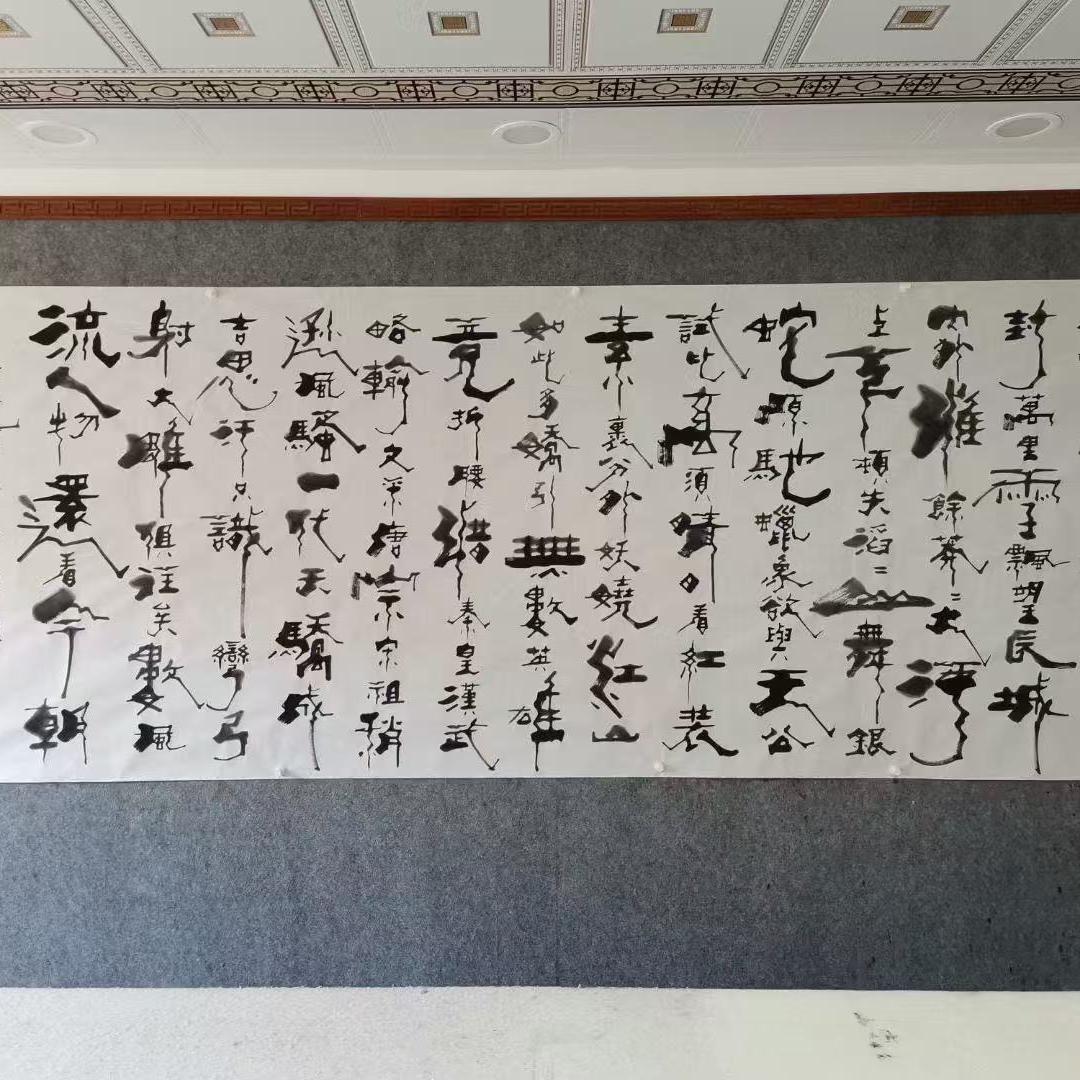 封萬里雪飄望長城
內外惟餘莽〻大河
上下頓失滔〻山舞銀
蛇原馳蠟象欲與天公
試比高須晴日看紅裝
素裹分外妖嬈江山
如此多嬌引無數英雄
竞折腰惜秦皇漢武
略輸文采唐宗宋祖稍
遜風騷一代天驕成
吉思汗只識彎弓
射大雕俱往矣數風
流人物還看今朝